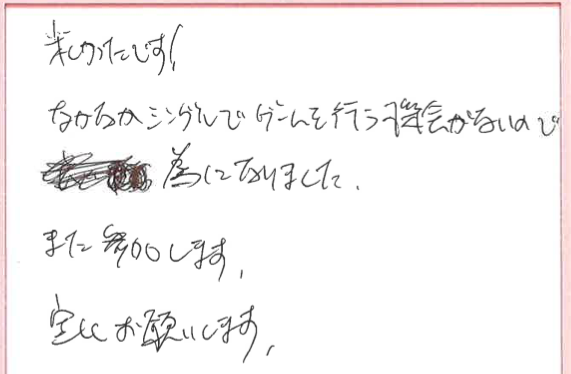 楽しかったです!
なかなかシングルでゲームを行う機会がないので
為になりました.
また参加します,
宜しくお願いします,